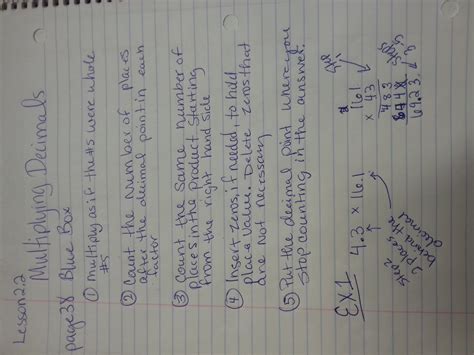 Lesson 2.2
Multiplying Decimals
page 38 Blue Box
① Multiply as if the #s were whole
#s
② Count the number of places
after the decimal point in each
factor
③ Count the same number of
places in the product starting
from the right hand side
④ Insert zeros, if needed, to hold
place value. Delete zeros that
are not necessary
⑤ Put the decimal point where you
stop counting in the answer.
EX1
4.3 × 16.1
Step 2
2 places
behind the
decimal
161
× 43
483